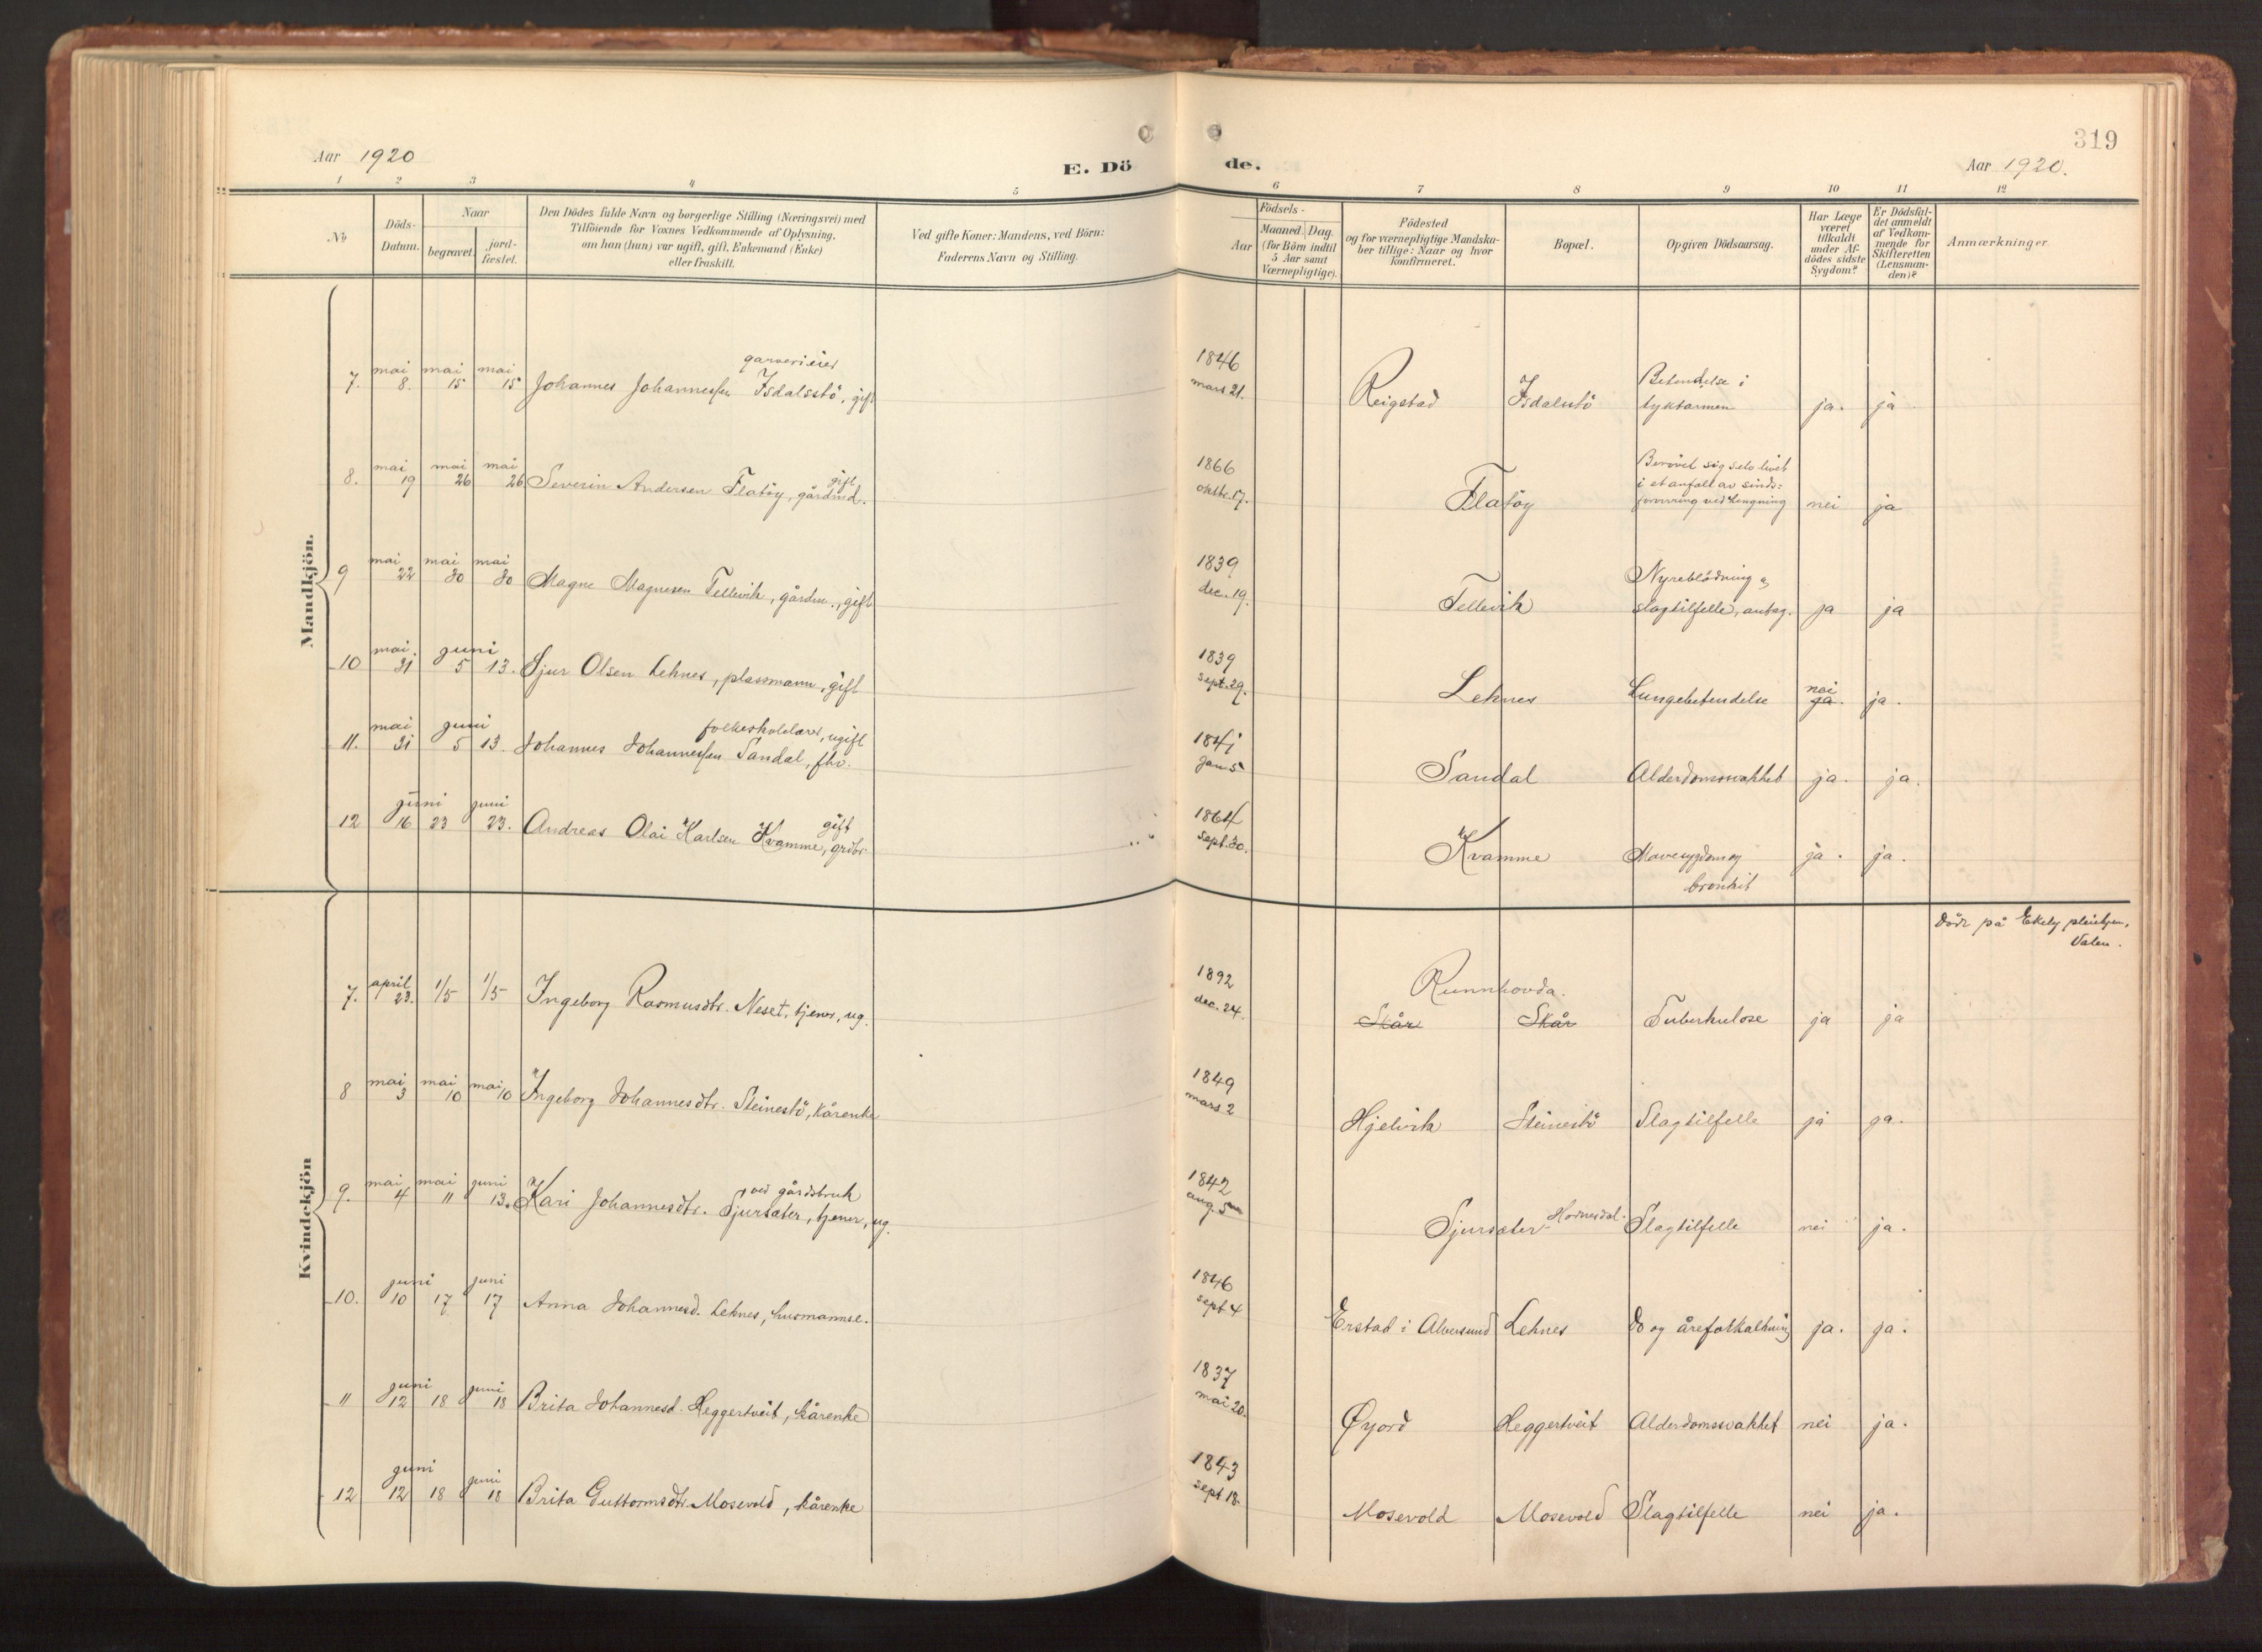 319
Aar 1920
E. Dö
de.
Aar 1920.
1 2 3 4 5 6 7 8 9 10 11 12
No
Döds-
Datum.
Naar
begravet.
jord-
fæstet.
Den Dödes fulde Navn og borgerlige Stilling (Næringsvei) med
Tilföiende for Voxnes Vedkommende af Oplysning,
om han (hun) var ugift, gift, Enkemand (Enke)
eller fraskilt.
Ved gifte Koner: Mandens, ved Börn:
Faderens Navn og Stilling.
Födsels-
Aar
Maaned. Dag.
(for Börn indtil
5 Aar samt
Værnepligtige).
Födested
og for værnepligtige Mandska-
ber tillige: Naar og hvor
konfirmeret.
Bopæl.
Opgiven Dödsaarsag.
Har Læge
været
tilkaldt
under Af-
dödes sidste
Sygdom?
Er Dödsfal-
det anmeldt
af Vedkom-
mende for
Skifteretten
(Lensman-
den)?
Anmærkninger.
Mandkjön.
garverieier
7. mai 8. mai 15 mai 15 Johannes Johannessen Isdalsstö, gift 1846 mars 21. Reigstad Isdalstö Betendelse i
tyktarmen ja. ja
8. mai 19 mai 26 mai 26 Severin Andersen Flatöy, gårdmd. gift 1866 oktbr. 17. Flatöy Berövet sig selv livet
i et anfall av sinds=
forvirring ved hengning nei ja
9 mai 22 mai 30 mai 30 Magne Magnesen Tellevik, gårdm., gift 1839 dec. 19. Tellevik Nyreblödning og
slagtilfelle, antag. ja ja
10 mai 31 juni 5 13. Sjur Olsen Leknes, plassmann, gift 1839 sept. 29. Leknes Lungebetendelse nei ja. ja.
folkeskolelærer, ugift
11. mai 31 juni 5 13. Johannes Johannessen Sandal, fhv. 1841 jan 5 Sandal Alderdomssvakhet ja. ja.
12 juni 16 23 juni 23. Andreas Olai Karlsen Kvamme, grdbr. gift 1864 sept. 30. Kvamme Mavesygdom og
bronkit ja. ja.
Kvindekjön
Döde på Ekely pleiehjem,
Valen.
7. april 23. 1/5 1/5 Ingeborg Rasmusdtr. Neset, tjener, ug. 1892 dec. 24. Runnhovda.
Skår Skår Tuberkulose ja ja
8 mai 3 mai 10 mai 10 Ingeborg Johannesdtr. Steinestö, kårenke 1849 mars 2 Hjelvik Steinestö Slagtilfelle ja ja.
ved gårdsbruk
9. mai 4 mai 11 juni 13. Kari Johannesdtr. Sjursæter, tjener, ug. 1842 aug. 5 Sjursæter- Hodnesdal. Slagtilfelle nei ja.
10. juni 10 17 juni 17 Anna Johannesd. Leknes, husmannse. 1846 sept 4 Erstad i Alversund Leknes Do og åreforkalkning ja. ja.
11 juni 12 18 juni 18 Brita Johannesd. Heggertveit, kårenke 1837 mai 20. Øyjord Heggertveit Alderdomssvakhet nei ja.
12 juni 12 18 juni 18 Brita Guttormsdtr. Mosevold, kårenke 1843 sept 18. Mosevold Mosevold Slagtilfelle nei ja.